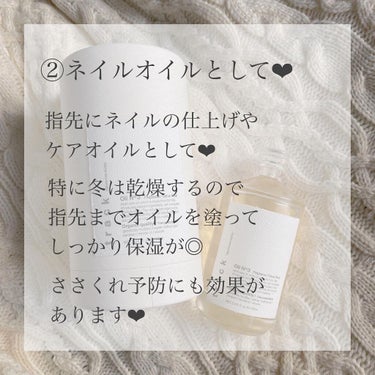 ②ネイルオイルとして❤
指先にネイルの仕上げや
ケアオイルとして❤
特に冬は乾燥するので
指先までオイルを塗って
しっかり保湿が◎
ささくれ予防にも効果が
あります❤
track
Oil Nº3
track
Oil Nº3